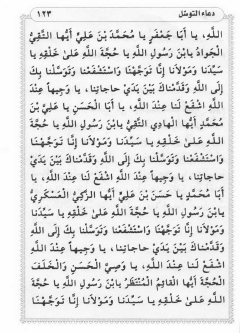 دعاء التوسل ١٢٣
اللَّهِ، يا أَبا جَعْفَرٍ يا مُحَمَّدَ بْنَ عَلِيٍّ أَيُّها التَّقِيُّ
الْجَوادُ يابْنَ رَسُولِ اللَّهِ يا حُجَّةَ اللَّهِ عَلىٰ خَلْقِهِ يا
سَيِّدَنا وَمَوْلانا إِنَّا تَوَجَّهْنا وَاسْتَشْفَعْنا وَتَوَسَّلْنا بِكَ
إِلَى اللَّهِ وَقَدَّمْناكَ بَيْنَ يَدَيْ حاجاتِنا، يا وَجِيهاً عِنْدَ
اللَّهِ اشْفَعْ لَنا عِنْدَ اللَّهِ، يا أَبَا الْحَسَنِ يا عَلِيَّ بْنَ
مُحَمَّدٍ أَيُّهَا الْهادِي النَّقِيُّ يابْنَ رَسُولِ اللَّهِ يا حُجَّةَ
اللَّهِ عَلىٰ خَلْقِهِ يا سَيِّدَنا وَمَوْلانا إِنَّا تَوَجَّهْنا
وَاسْتَشْفَعْنا وَتَوَسَّلْنا بِكَ إِلَى اللَّهِ وَقَدَّمْناكَ بَيْنَ يَدَيْ
حاجاتِنا، يا وَجِيهاً عِنْدَ اللَّهِ اشْفَعْ لَنا عِنْدَ اللَّهِ، يا
أَبا مُحَمَّدٍ يا حَسَنَ بْنَ عَلِيٍّ أَيُّهَا الزَّكِيُّ الْعَسْكَرِيُّ
يابْنَ رَسُولِ اللَّهِ يا حُجَّةَ اللَّهِ عَلىٰ خَلْقِهِ يا سَيِّدَنا
وَمَوْلانا إِنَّا تَوَجَّهْنا وَاسْتَشْفَعْنا وَتَوَسَّلْنا بِكَ إِلَى اللَّهِ
وَقَدَّمْناكَ بَيْنَ يَدَيْ حاجاتِنا، يا وَجِيهاً عِنْدَ اللَّهِ
اشْفَعْ لَنا عِنْدَ اللَّهِ، يا وَصِيَّ الْحَسَنِ وَالْخَلَفَ
الْحُجَّةَ أَيُّهَا الْقائِمُ الْمُنْتَظَرُ يابْنَ رَسُولِ اللَّهِ يا حُجَّةَ
اللَّهِ عَلىٰ خَلْقِهِ يا سَيِّدَنا وَمَوْلانا إِنَّا تَوَجَّهْنا